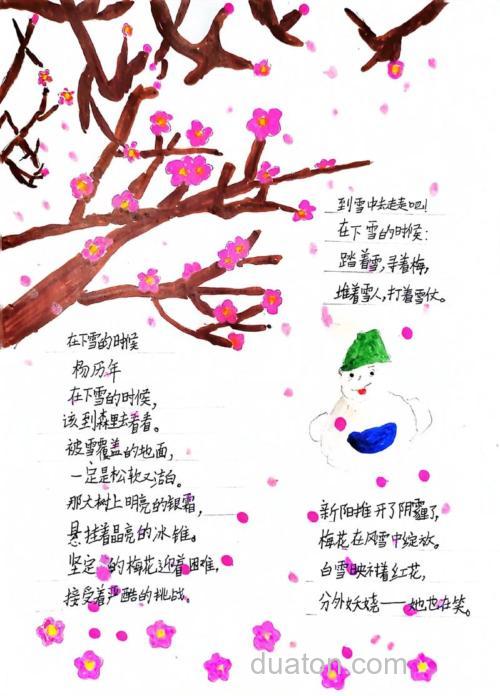 在下雪的时候
杨历年
在下雪的时候，
该到森里去看看。
被雪覆盖的地面，
一定是松软又洁白。
那大树上明亮的银霜，
悬挂着晶亮的冰锥。
坚定的梅花迎着困难，
接受着严酷的挑战。
到雪中去走走吧！
在下雪的时候：
踏着雪，寻着梅，
堆着雪人，打着雪仗。
新阳推开了阴霾了，
梅花在风雪中绽放。
白雪映衬着红花，
分外妖娆——她也在笑。
duaton.com